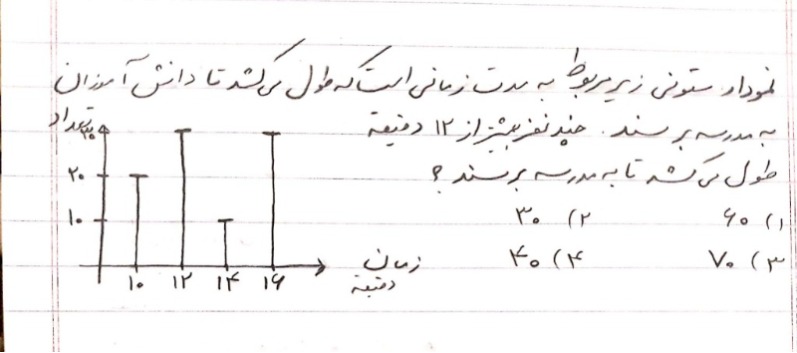 نمودار ستونی زیر مربوط به مدت زمانی است که طول می‌کشد تا دانش آموزان
به مدرسه برسند. چند نفر بیشتر از ۱۲ دقیقه
طول می‌کشد تا به مدرسه برسند ؟
۱) ۶۰ ۲) ۳۰
۳) ۷۰ ۴) ۴۰
تعداد
۳۰
۲۰
۱۰
۱۰ ۱۲ ۱۴ ۱۶
زمان
دقیقه